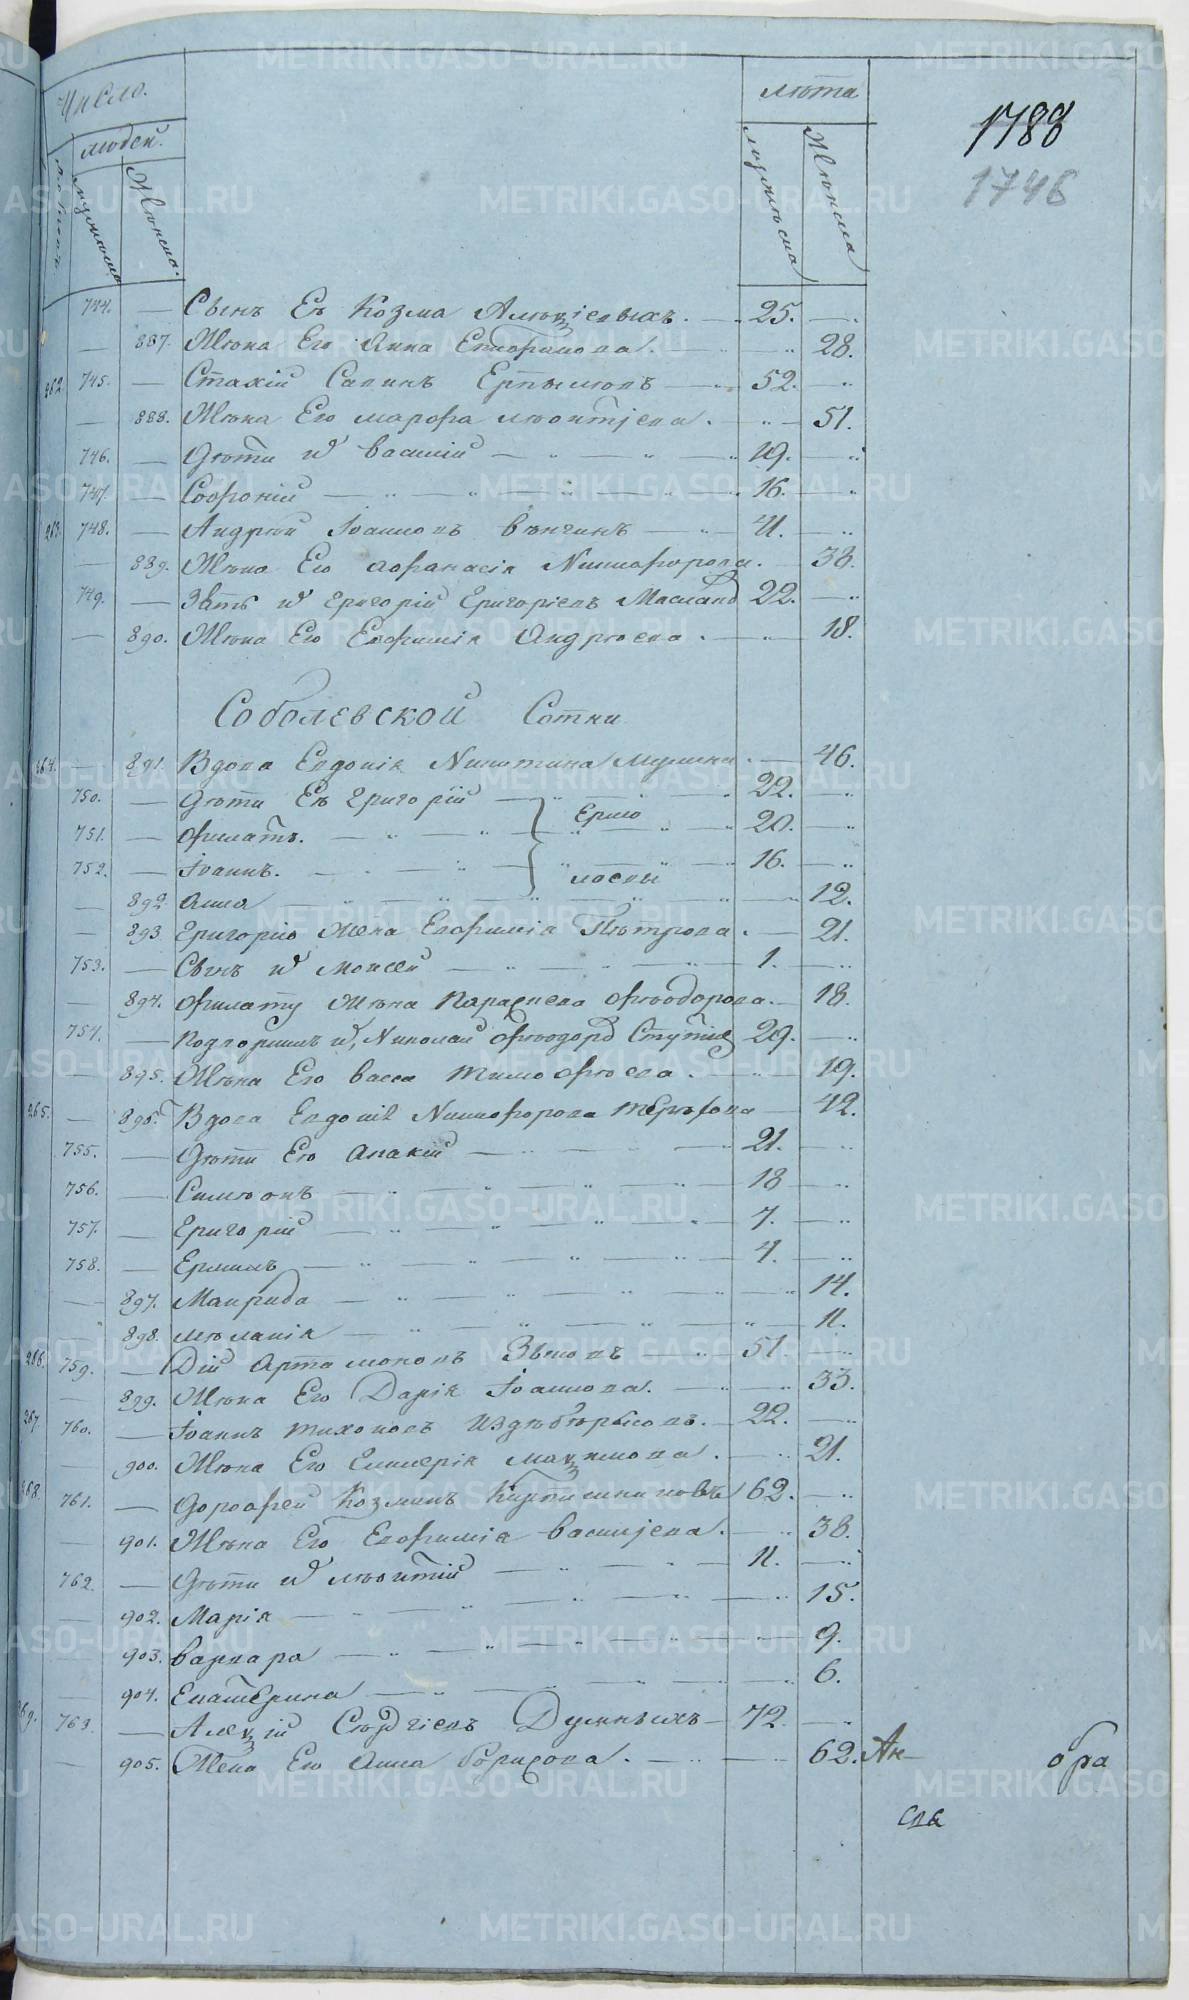 Число.
людей.
мужеска
женска.
лѣта
мужеска
женска
1788
1746
744. — Сынъ Ея Козма Алеѯіевыхъ. — 25. —
— 887. Жена Его Анна Евфимова. — 28.
262. 745. — Стахій Савинъ — 52. —
— 888. Жена Его Марфа Леонтіева. — 51.
746. — Дѣти и҆ Василій — 19. —
747. — Софроній — 16. —
263. 748. — Андрей Іоанновъ — 41. —
— 889. Жена Его Афанасія Никифорова. — 38.
749. — Зять и҆ Григорій Григоріевъ — 22. —
— 890. Жена Его Евфимія Андреева. — 18.
Соболевской Сотни
264. — 891. Вдова Евдокія Никитина — 46.
750. — Дѣти Ея Григорій — 22. —
Ермо
751. — Филатъ. — 20. —
752. — Іоаннъ. — 16. —
лаевы
— 892 Анна — 12.
— 893 Григорію Жена Евфимія Петрова. — 21.
753. — Сынъ и҆ Моисей — 1. —
— 894. Филату Жена Параскева Феодорова. — 18.
754. — и҆, Николай Феодоров — 29. —
— 895. Жена Его Васса Тимофеева. — 19.
265. — 896. Вдова Евдокія Никифорова — 42.
755. — Дѣти Его Акакій — 21. —
756. — Симеонъ — 18 —
757. — Григорій — 7. —
758. — Ермилъ — 4. —
— 897. Маврида — 14.
— 898. Меланія — 11.
266. 759. — Дій Артамоновъ — 51. —
— 899. Жена Его Дарія Іоаннова. — 33.
267. 760. — Іоаннъ Тихоновъ — 22. —
— 900. Жена Его Гликерія Маѯимова. — 21.
268. 761. — Дорофей Козминъ Кирпишниковъ 62. —
— 901. Жена Его Евфимія Василіева. — 38.
762. — Дѣти и҆ Леонтій — 11. —
— 902. Марія — 15.
— 903. Варвара — 9.
— 904. Екатерина — 6.
269. 763. — Алеѯій Сергіевъ Думныхъ — 72. —
— 905. Жена Его Анна Борисова. — 62. Ан— обра